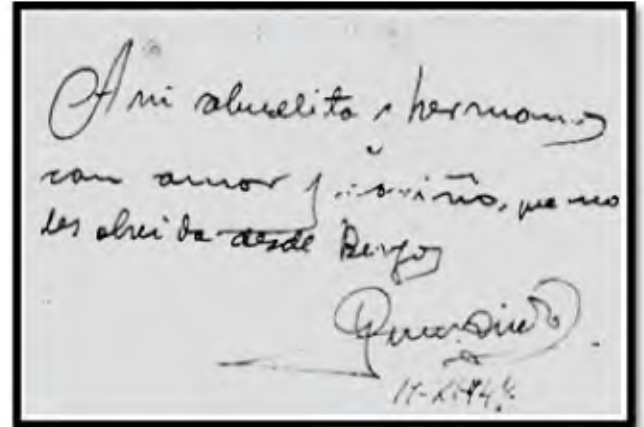 A mi abuelita y hermanos
con amor y cariño, que no
les olvida desde Burgos